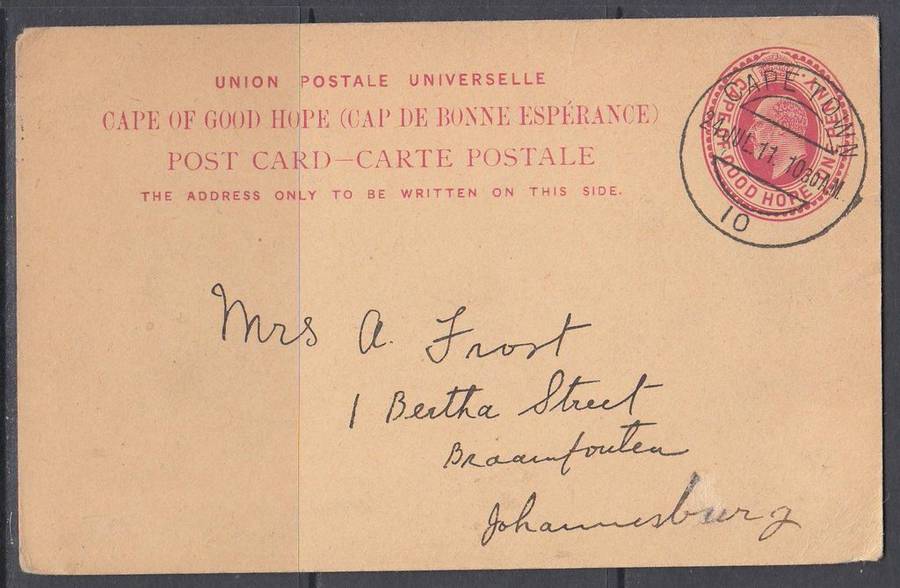 UNION POSTALE UNIVERSELLE
CAPE OF GOOD HOPE (CAP DE BONNE ESPÉRANCE)
POST CARD–CARTE POSTALE
THE ADDRESS ONLY TO BE WRITTEN ON THIS SIDE.
CAPE OF GOOD HOPE ONE PENNY
CAPE TOWN
JUL 11. 10 30 AM.
10
Mrs A. Frost
1 Bertha Street
Braamfontein
Johannesburg